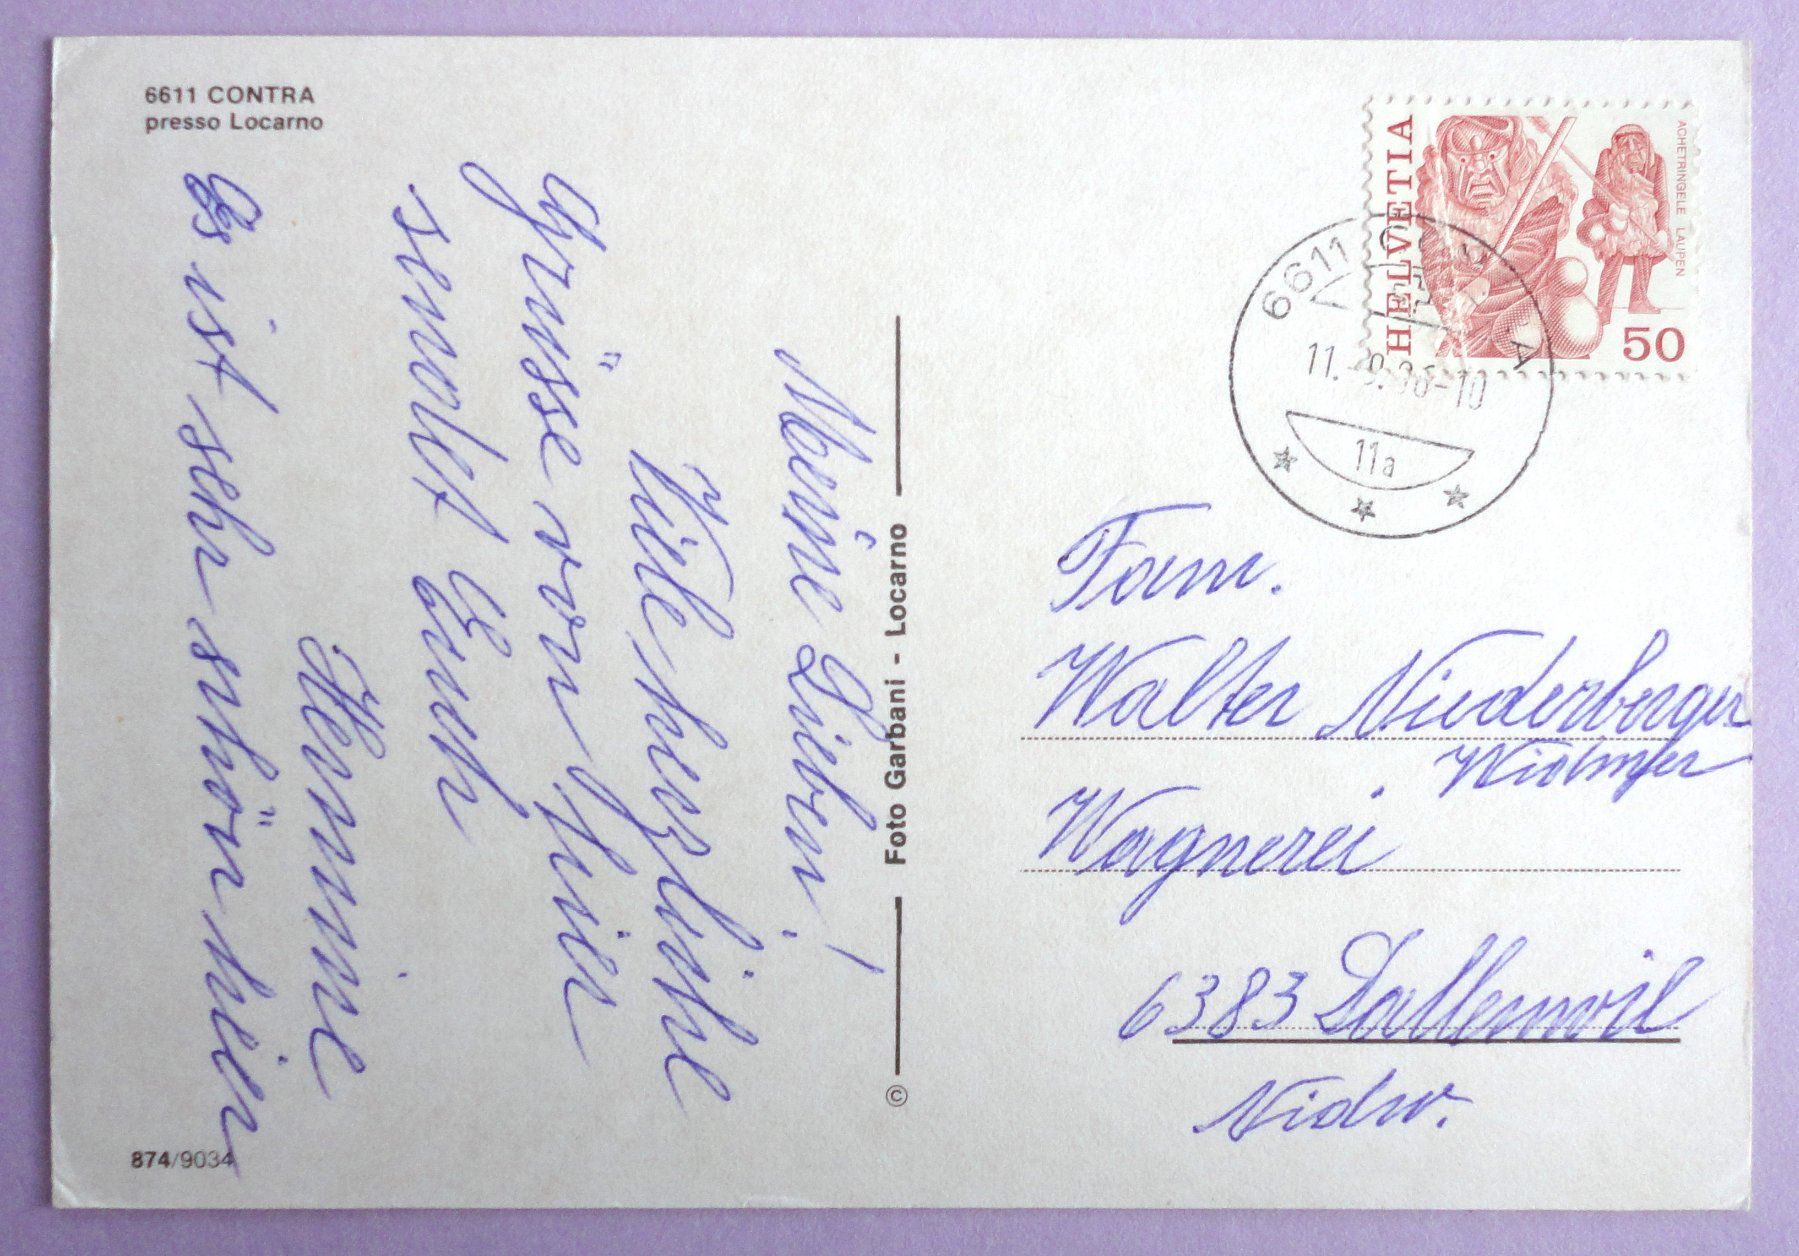 6611 CONTRA
presso Locarno
Meine Lieben!
Viele herzliche
Grüsse von hier
sendet Euch
Hermine
Es ist sehr schön hier
Foto Garbani - Locarno
©
874/9034
HELVETIA
ACHETRINGELE LAUPEN
50
6611
11. -9.86-10
11a
Fam.
Walter Niederberger
Wagnerei
6383 Dallenwil
Nidw.